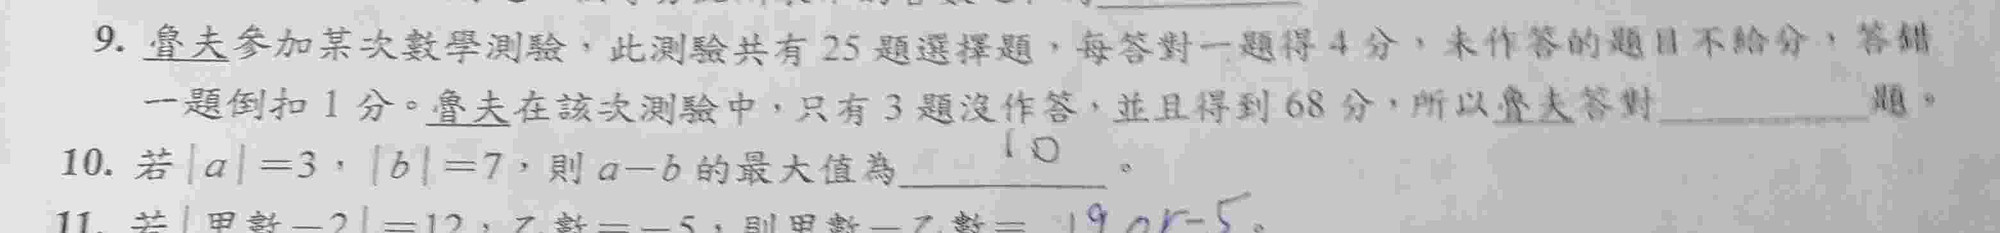 9. 魯夫參加某次數學測驗，此測驗共有 25 題選擇題，每答對一題得 4 分，未作答的題目不給分，答錯
一題倒扣 1 分。魯夫在該次測驗中，只有 3 題沒作答，並且得到 68 分，所以魯夫答對________題。
10. 若|a|=3，|b|=7，則 a-b 的最大值為 10 。
11. 若|甲數-2|=12，乙數=-5，則甲數-乙數= 19 or -5。